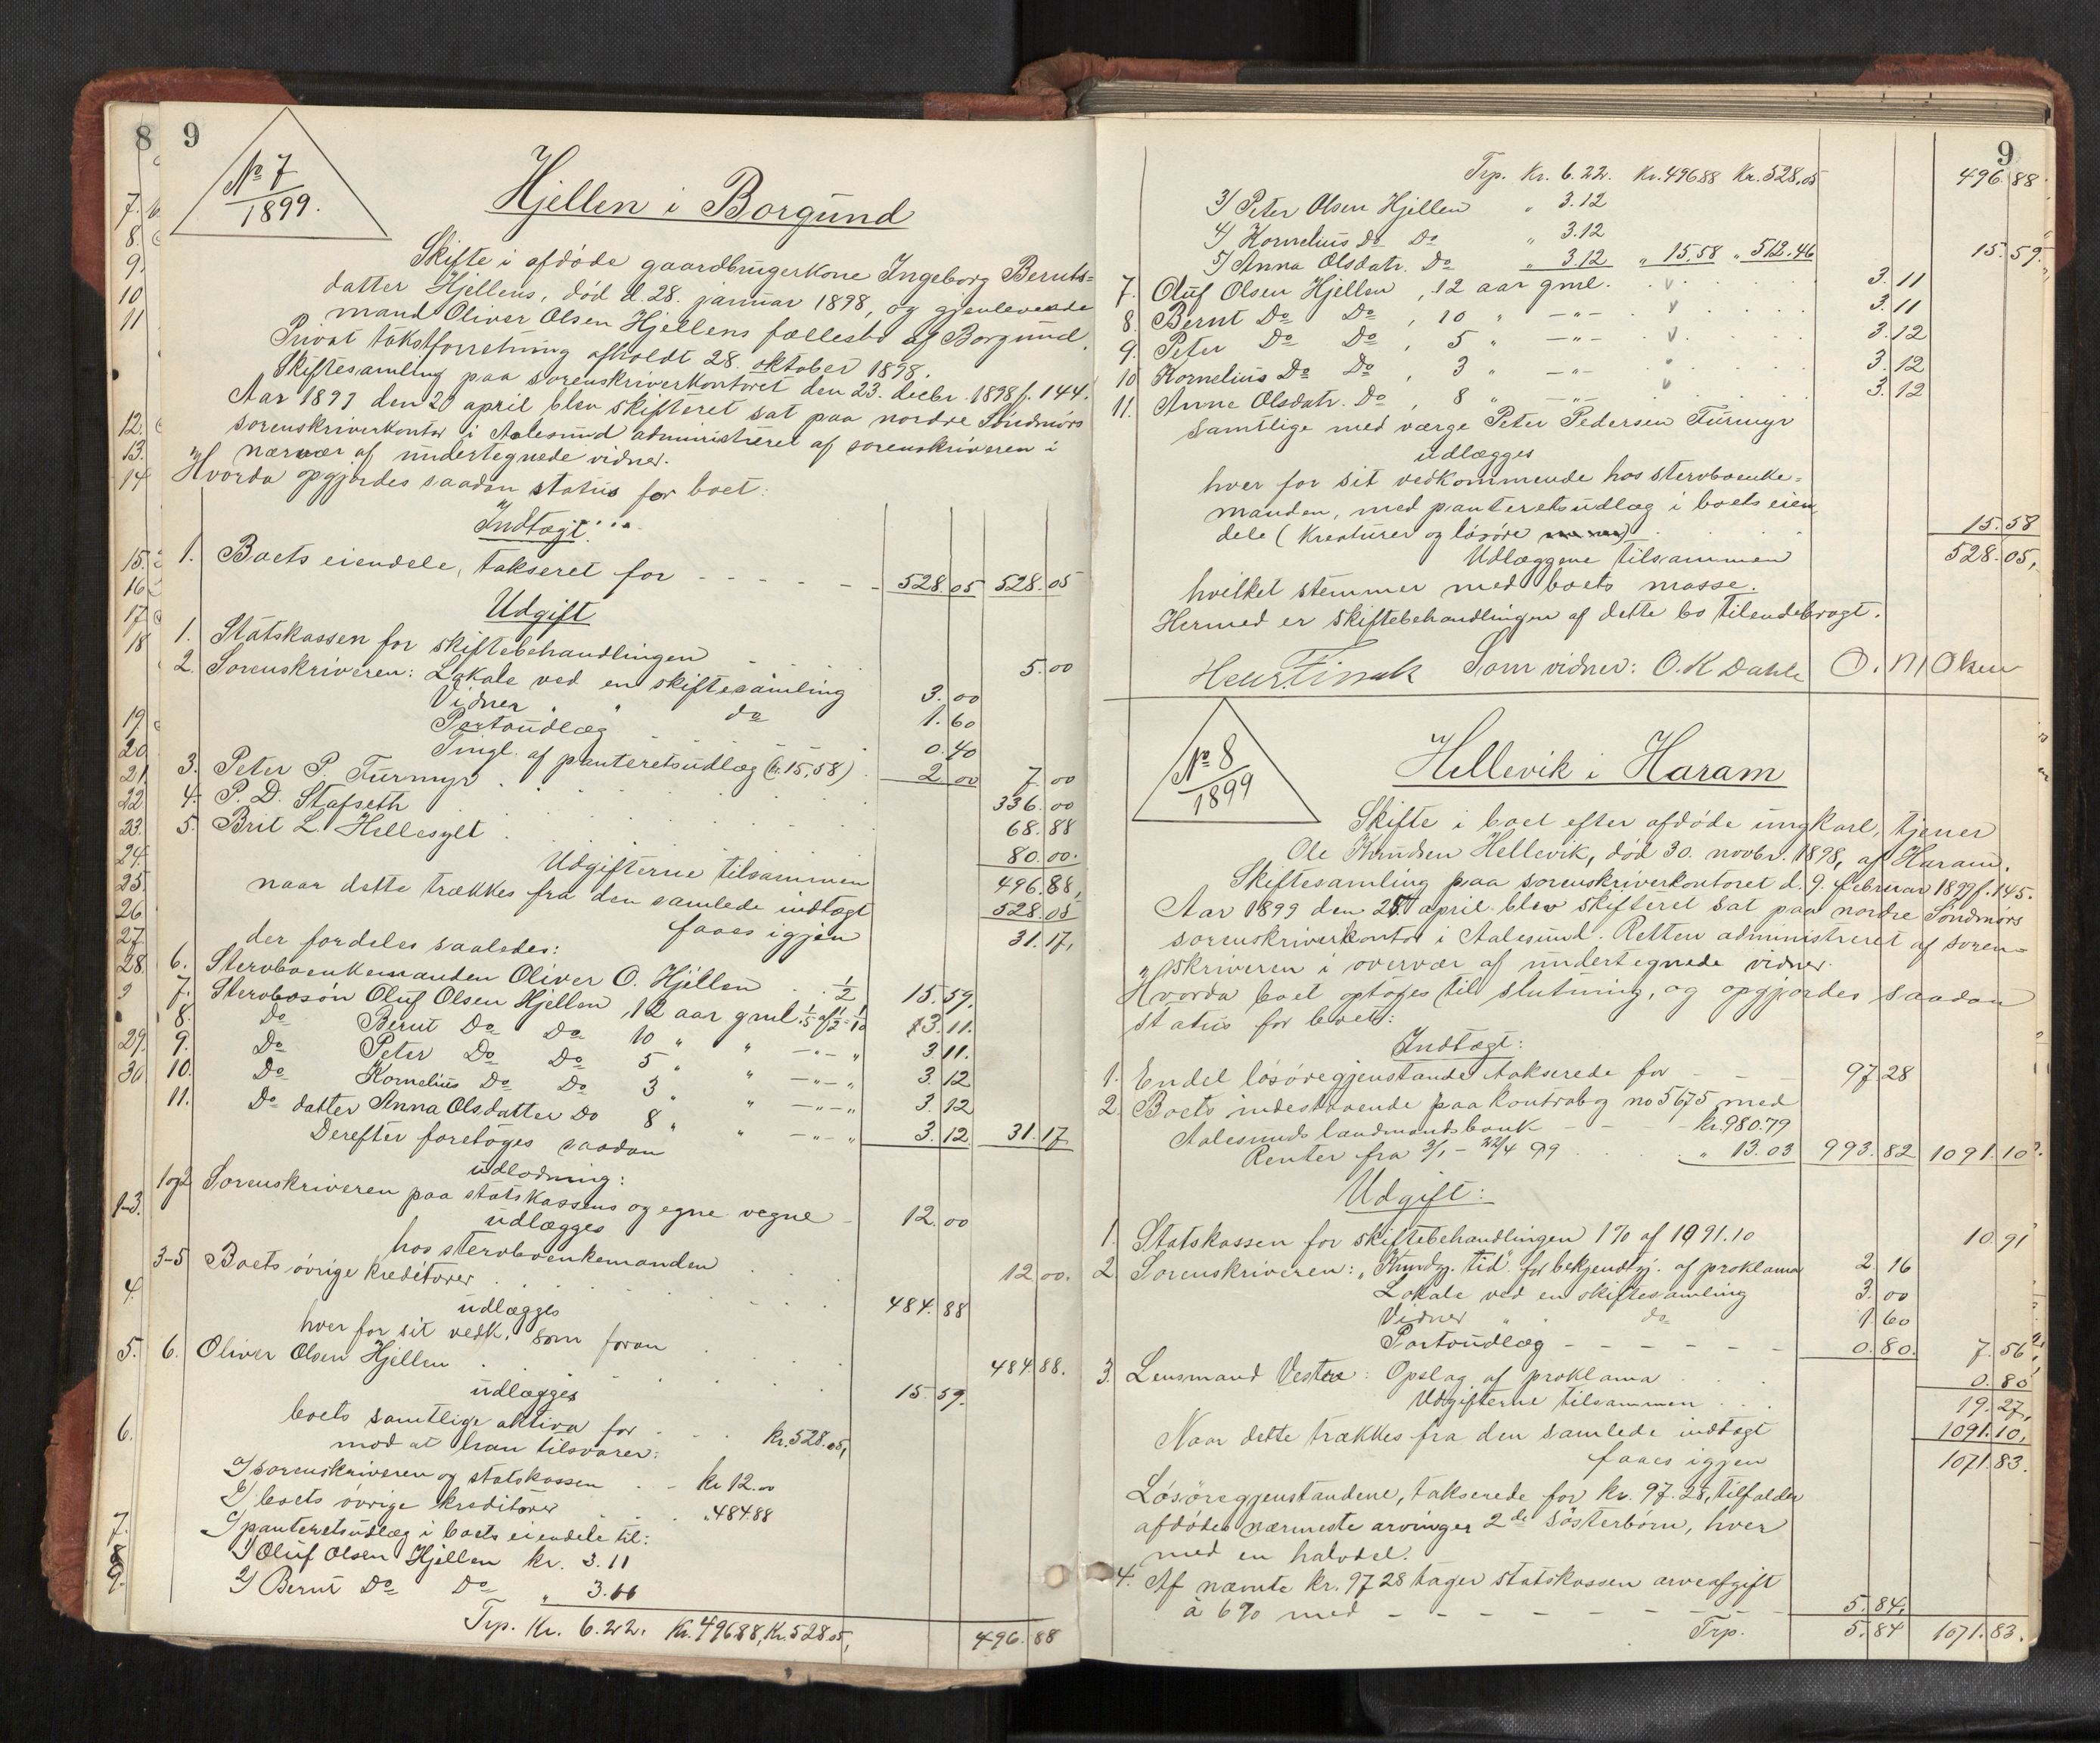 8 9
№ 7
1899.
Hjellen i Borgund
Skifte i afdøde gaardbrugerkone Ingeborg Bernts=
datter Hjellens, død d. 28. januar 1898, og gjenlevende
mand Oliver Olsen Hjellens fællesbo af Borgund.
Privat takstforretning afholdt 28. oktober 1898.
Skiftesamling paa sorenskriverkontoret den 23. decbr. 1898 f. 144.
Aar 1899 den 29 april blev skifteret sat paa nordre Søndmørs
sorenskriverkontor i Aalesund administreret af sorenskriveren i
nærvær af undertegnede vidner.
Hvorda opgjordes saadan status for boet:
Indtægt:
1. Boets eiendele, takseret for - - - - - 528.05 528.05
Udgift
1. Statskassen for skiftebehandlingen 5.00
2. Sorenskriveren: Lokale ved en skiftesamling 3.00
Vidner " do 1.60
Portoudlæg 0.40
Tingl. af panteretsudlæg (kr. 15,58) 2 00 7.00
3. Peter P. Furmyr 336.00
4. P. D. Stafseth 68.88
5. Brit L. Hellesylt 80.00.
Udgifterne tilsammen 496.88,
naar dette trækkes fra den samlede indtægt 528.05
faaes igjen 31.17,
der fordeles saaledes:
6. Stervboenkemanden Oliver O. Hjellen . . 1/2 15.59.
7. Stervbosøn Oluf Olsen Hjellen 12 aar gml. 1/5 af 1/2 = 1/10 3.11.
8. do Bernt Do Do 10 " " —"— " 3 11.
9. Do Peter Do Do 5 " " —"— " 3.12
10. Do Kornelius Do Do 3 " " —"— " 3.12
11. Do datter Anna Olsdatter Do 8 " " —"— " 3.12 31.17
Derefter foretoges saadan
udlodning:
1 og 2 Sorenskriveren paa statskassens og egne vegne - 12.00
udlægges
hos stervboenkemanden 12 00.
3-5 Boets øvrige kreditorer 484.88
udlægges
hver for sit vedk. som foran 484.88.
6. Oliver Olsen Hjellen 15.59.
udlægges
boets samtlige aktiva for . . . kr. 528.05,
mod at han tilsvarer:
a) sorenskriveren og statskassen . - kr 12.00
b) boets øvrige kreditorer . . . " 484.88
c) panteretsudlæg i boets eiendele til:
1) Oluf Olsen Hjellen kr. 3.11
2) Bernt Do Do " 3.11
Trp. Kr. 6.22. Kr. 496.88, Kr. 528.05, 496.88
9
Trp. Kr. 6.22. Kr. 496 88 Kr. 528,05 496.88.
3) Peter Olsen Hjellen " 3.12
4) Kornelius Do Do " 3.12
5) Anna Olsdatr. Do " 3.12 " 15.58 " 512.46 15.59.
7. Oluf Olsen Hjellen , 12 aar gml. 3.11
8. Bernt Do Do , 10 " —"— 3.11
9. Peter Do Do , 5 " —"— 3.12
10 Kornelius Do Do , 3 " —"— 3.12
11. Anne Olsdatr. Do , 8 " —"— 3.12
samtlige med værge Peter Pedersen Furmyr
udlægges
hver for sit vedkommende hos stervboenke=
manden, med panteretsudlæg i boets eien
dele (Kreaturer og løsøre) 15.58
Udlæggene tilsammen 528.05,
hvilket stemmer med boets masse.
Hermed er skiftebehandlingen af dette bo tilendebragt.
Som vidner: O. K Dahle O. M Olsen
№ 8
1899
Hellevik i Haram
Skifte i boet efter afdøde ungkarl, tjener
Ole Knudsen Hellevik, død 30. novbr. 1898, af Haram.
Skiftesamling paa sorenskriverkontoret d. 9. februar 1899 f. 145.
Aar 1899 den 25 april blev skifteret sat paa nordre Søndmørs
sorenskriverkontor i Aalesund. Retten administreret af soren=
skriveren i overvær af undertegnede vidner.
Hvorda boet optoges til slutning, og opgjordes saadan
status for boet:
Indtægt:
1. Endel løsøregjenstande takserede for - - - 97 28
2. Boets indestaaende paa kontrabog no 5675 med
Aalesunds landmandsbank - - - kr. 980.79
Renter fra 3/1 - 22/4 99 . . . " 13.03 993.82 1091.10.
Udgift:
1. Statskassen for skiftebehandlingen 1% af 1091.10 10.91
2. Sorenskriveren: "Kundgj. tid". for bekjendtgj. af proklama 2 16
Lokale ved en skiftesamling 3.00
Vidner " do 1 60
Portoudlæg - - - - - - 0.80. 7.56
3. Lensmand Vestre: Opslag af proklama . . . 0.80
Udgifterne tilsammen . . . 19.27,
Naar dette trækkes fra den samlede indtægt 1091.10,
faaes igjen 1071.83.
Løsøregjenstandene, takserede for kr. 97.28, tilfalder
afdødes nærmeste arvinger 2de søsterbørn, hver
med en halvdel.
4. Af nævnte kr. 97 28 tager statskassen arveafgift
à 6% med - - - - - - - - 5.84.
Trp. 5.84 1071.83.